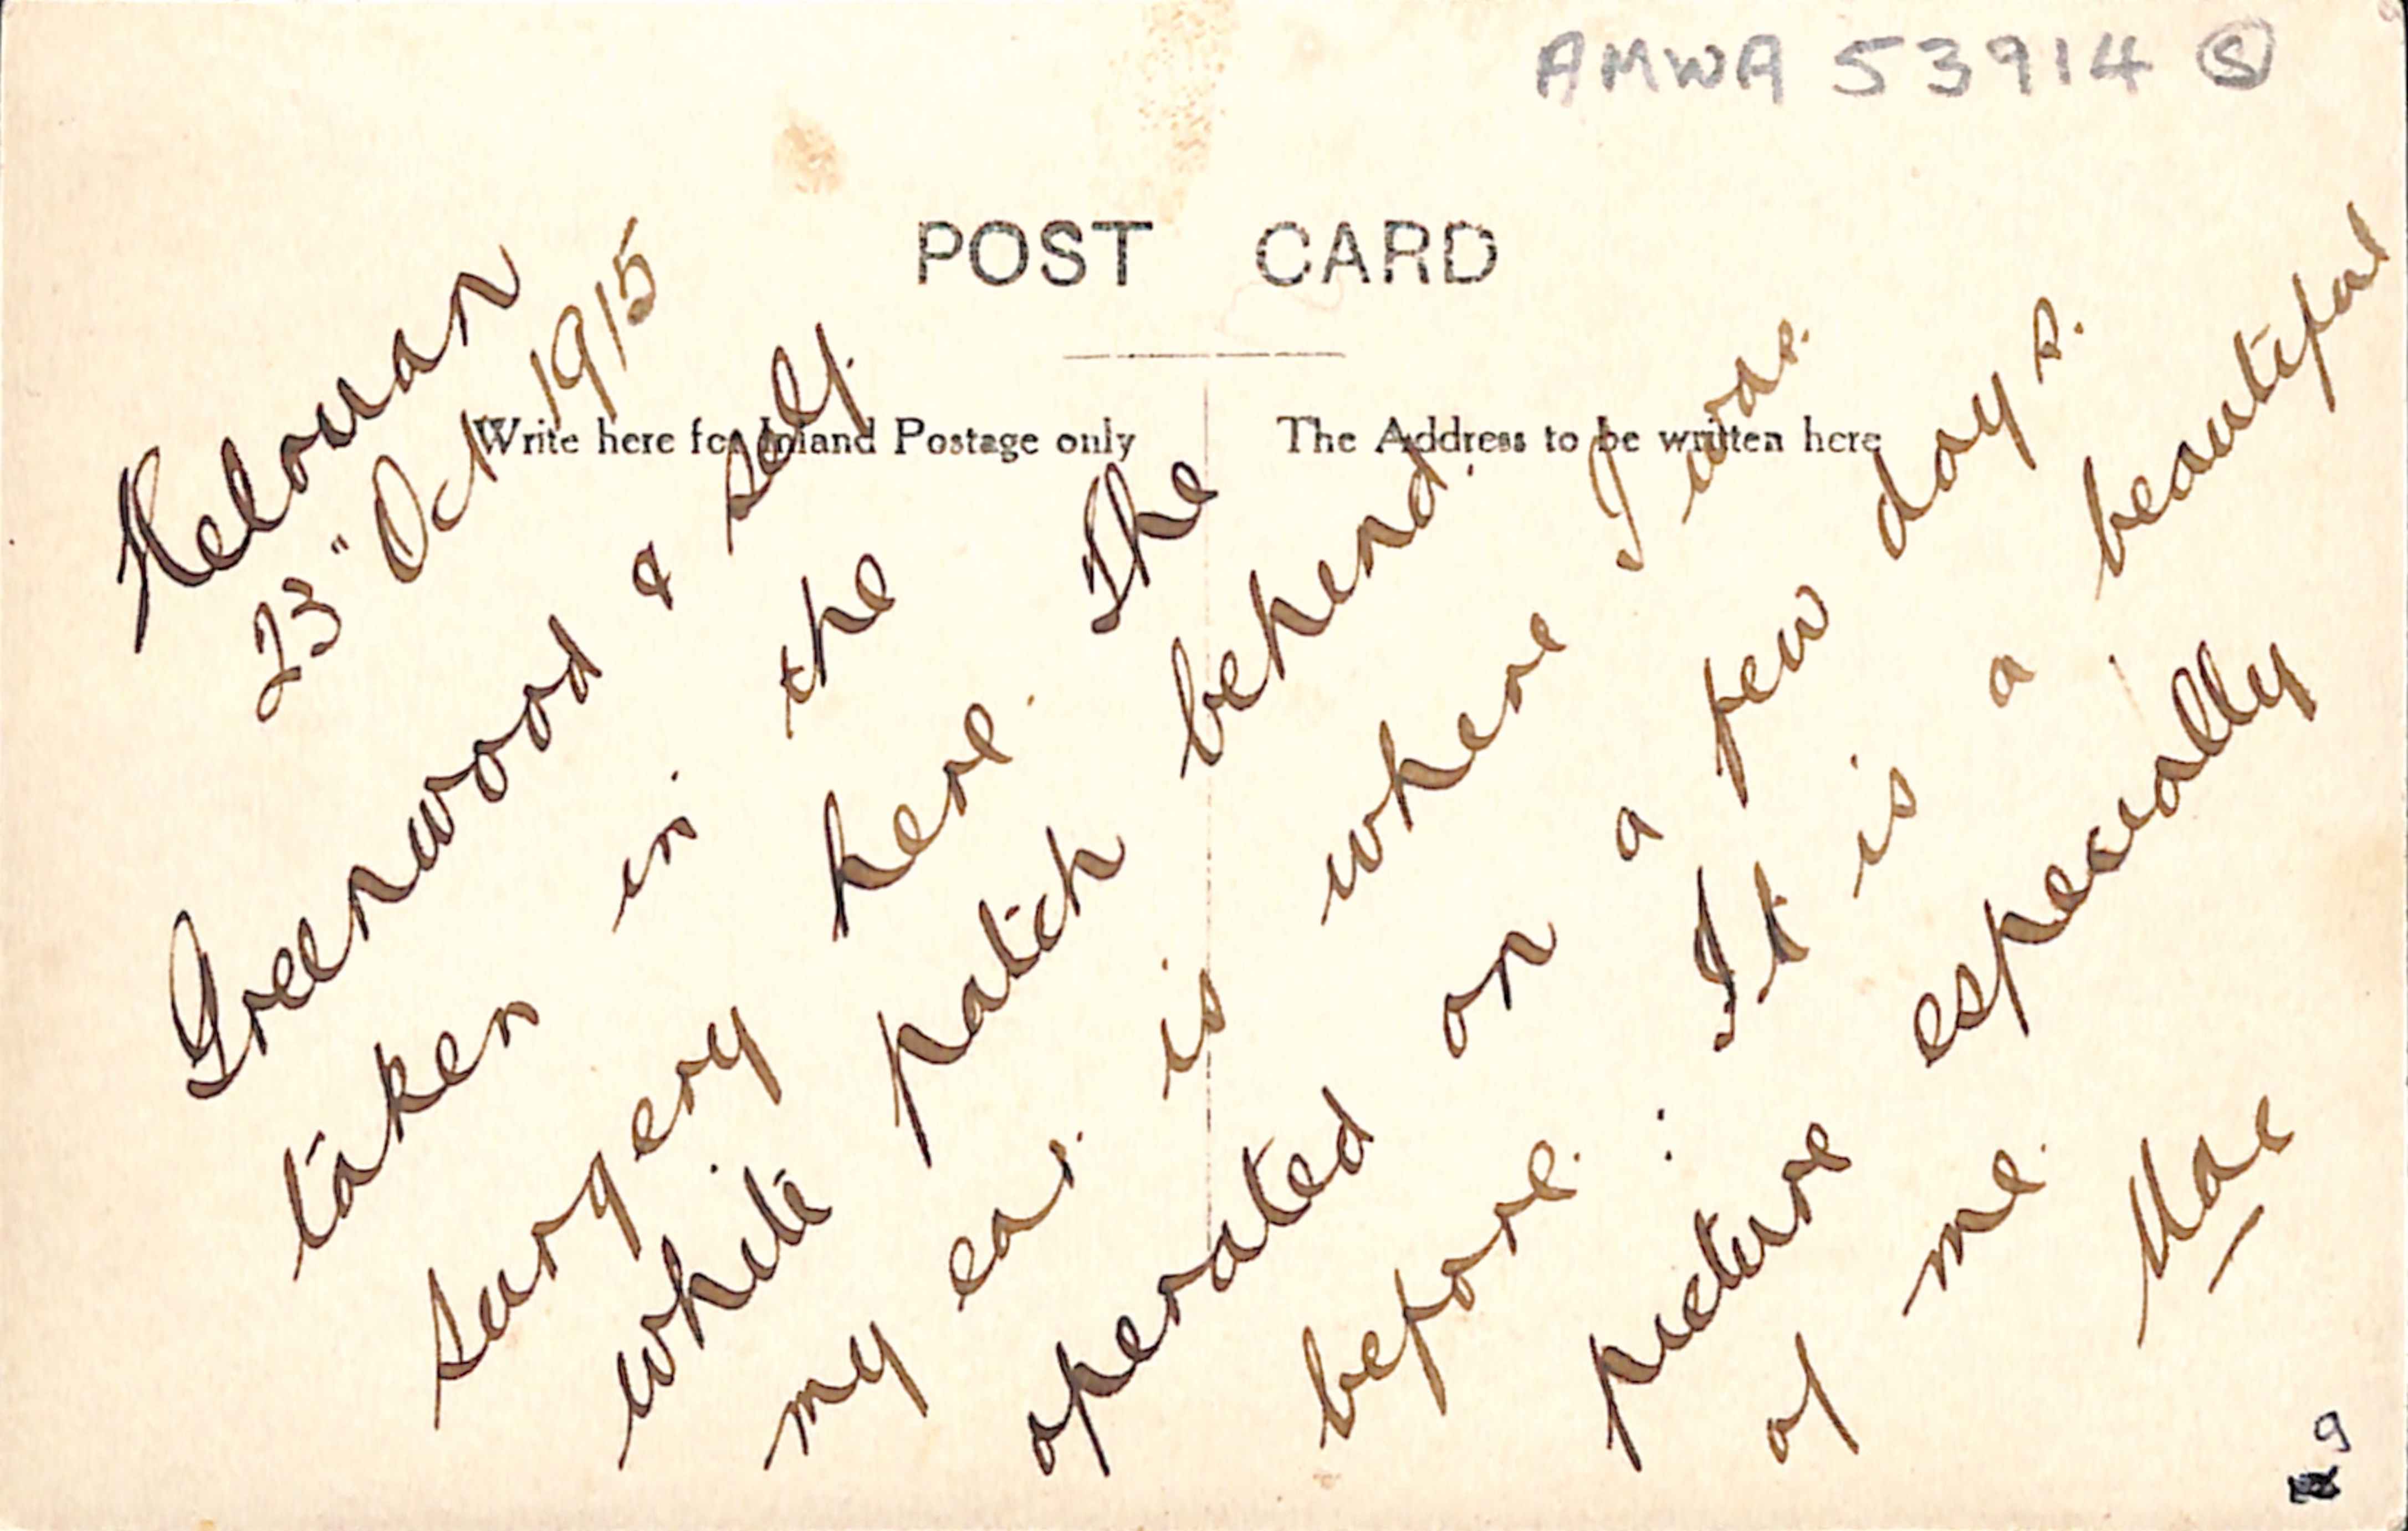 AMWA 53914 S
POST CARD
Write here for Inland Postage only
The Address to be written here
Helouan
23" Oct 1915
Greenwood & self.
taken in the
surgery here. The
white patch behind.
my ear. is where I was.
operated on a few days.
before. It is a beautiful
picture especially
of me.
Mac
9